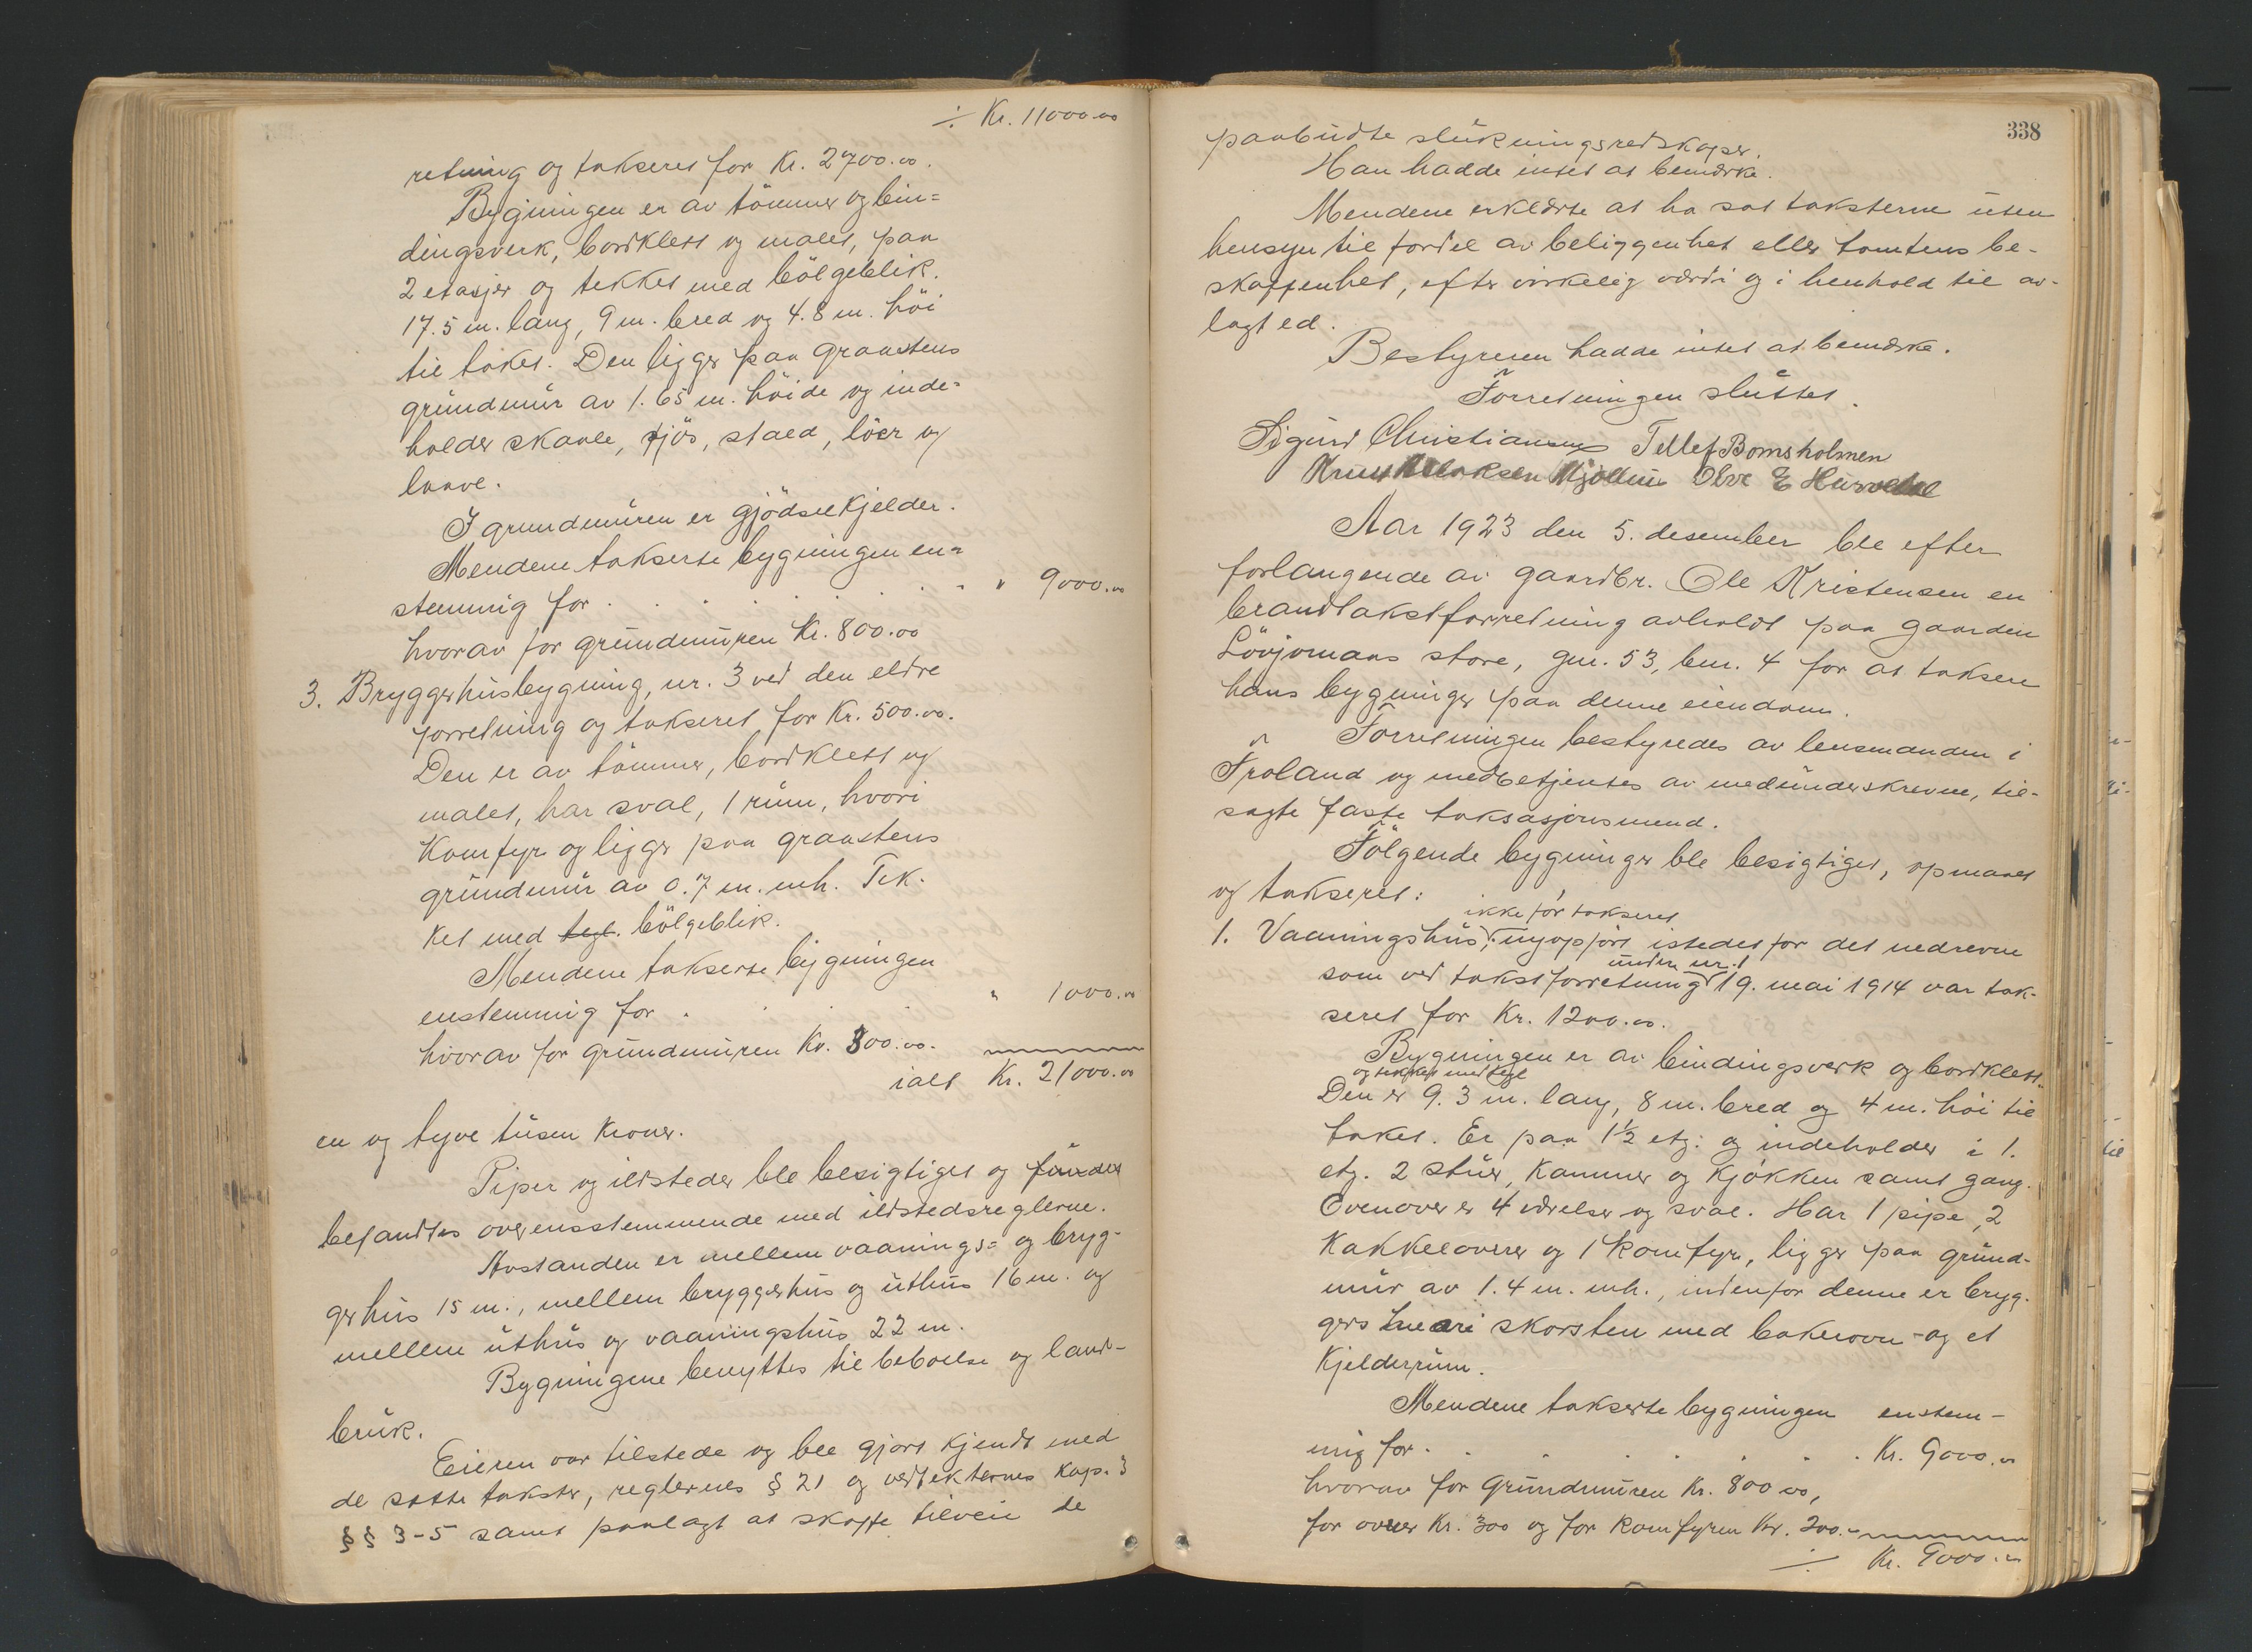 ÷ Kr. 11000.00
retning og takseret for Kr. 2700.00.
Bygningen er av tömmer og bin=
dingsverk, bordklett og malet, paa
2 etasjer og tekket med bölgeblik.
17.5 m. lang, 9 m. bred og 4.8 m. höi
til taket. Den ligger paa graastens
grundmur av 1.65 m. höide og inde=
holder skaale, fjös, stald, löer og
laave.
I grundmuren er gjödselkjelder.
Mendene takserte bygningen en=
stemmig for . . . . . . . . " 9000.00
hvorav for grundmuren Kr. 800.00
3. Bryggerhusbygning, nr. 3 ved den eldre
forretning og takseret for Kr. 500.00.
Den er av tömmer, bordklett og
malet, har sval, 1 rum, hvori
Komfyr og ligger paa graastens
grundmur av 0.7 m. mh. Tek-
ket med tegl. bölgeblik.
Mendene takserte bygningen
enstemmig for . . . . " 1000.00
hvorav for grundmuren Kr. 300.00.
ialt Kr. 21000.00
en og tyve tusen kroner.
Piper og ildsteder ble besigtiget og funder
befandtes overensstemmende med ildstedsreglerne.
Avstanden er mellem vaanings= og bryg-
gerhus 15 m., mellem bryggerhus og uthus 16 m. og
mellem uthus og vaaningshus 22 m.
Bygningene benyttes til beboelse og land-
bruk.
Eieren var tilstede og ble gjort kjendt med
de satte takster, reglernes § 21 og vedtekternes Kap. 3
§§ 3-5 samt paalagt at skaffe tilveie de
338
paabudte slukningsredskaper.
Han hadde intet at bemærke.
Mendene erklærte at ha sat taksterne uten
hensyn til fordel av beliggenhet eller tomtens be-
skaffenhet, efter virkelig værdi og i henhold til av-
lagt ed.
Bestyreren hadde intet at bemærke.
Forretningen sluttet.
Sigurd Christiansen Tellef Bomsholmen
Knut Aslaksen Mjøllun Olve E Hurvedal
Aar 1923 den 5. desember ble efter
forlangende av gaardbr. Ole Kristensen en
brandtakstforretning avholdt paa gaarden
Lövjomaas store, gnr. 53, bnr. 4 for at taksere
hans bygninger paa denne eiendom.
Forretningen bestyredes av lensmanden i
Froland og medbetjentes av medunderskrevne, til-
sagte faste taksasjonsmend.
Fölgende bygninger ble besigtiget, opmaalt
og takseret:
ikke för takseret
1. Vaaningshus, nyopfört istedet for det nedrevne
under nr. 1
som ved takstforretning 19. mai 1914 var tak-
seret for Kr. 1200.00.
Bygningen er av bindingsverk og bordklett.
og tekket med tegl
Den er 9.3 m. lang, 8 m. bred og 4 m. höi til
taket. Er paa 1½ etg. og indeholder i 1.
etg. 2 stuer, Kammer og Kjökken samt gang.
Ovenover er 4 værelser og sval. Har 1 pipe, 2
Kakkelovner og 1 Komfyr, ligger paa grund-
mur av 1.4 m. mh., indenfor denne er bryg-
gers hvori skorsten med bakerovn og et
Kjelderrum.
Mendene takserte bygningen enstem-
mig for . . . . . . . . Kr. 9000.00
hvorav for Grundmuren Kr. 800.00,
for ovner Kr. 300 og for Komfyren Kr. 200.-
÷ Kr. 9000.00